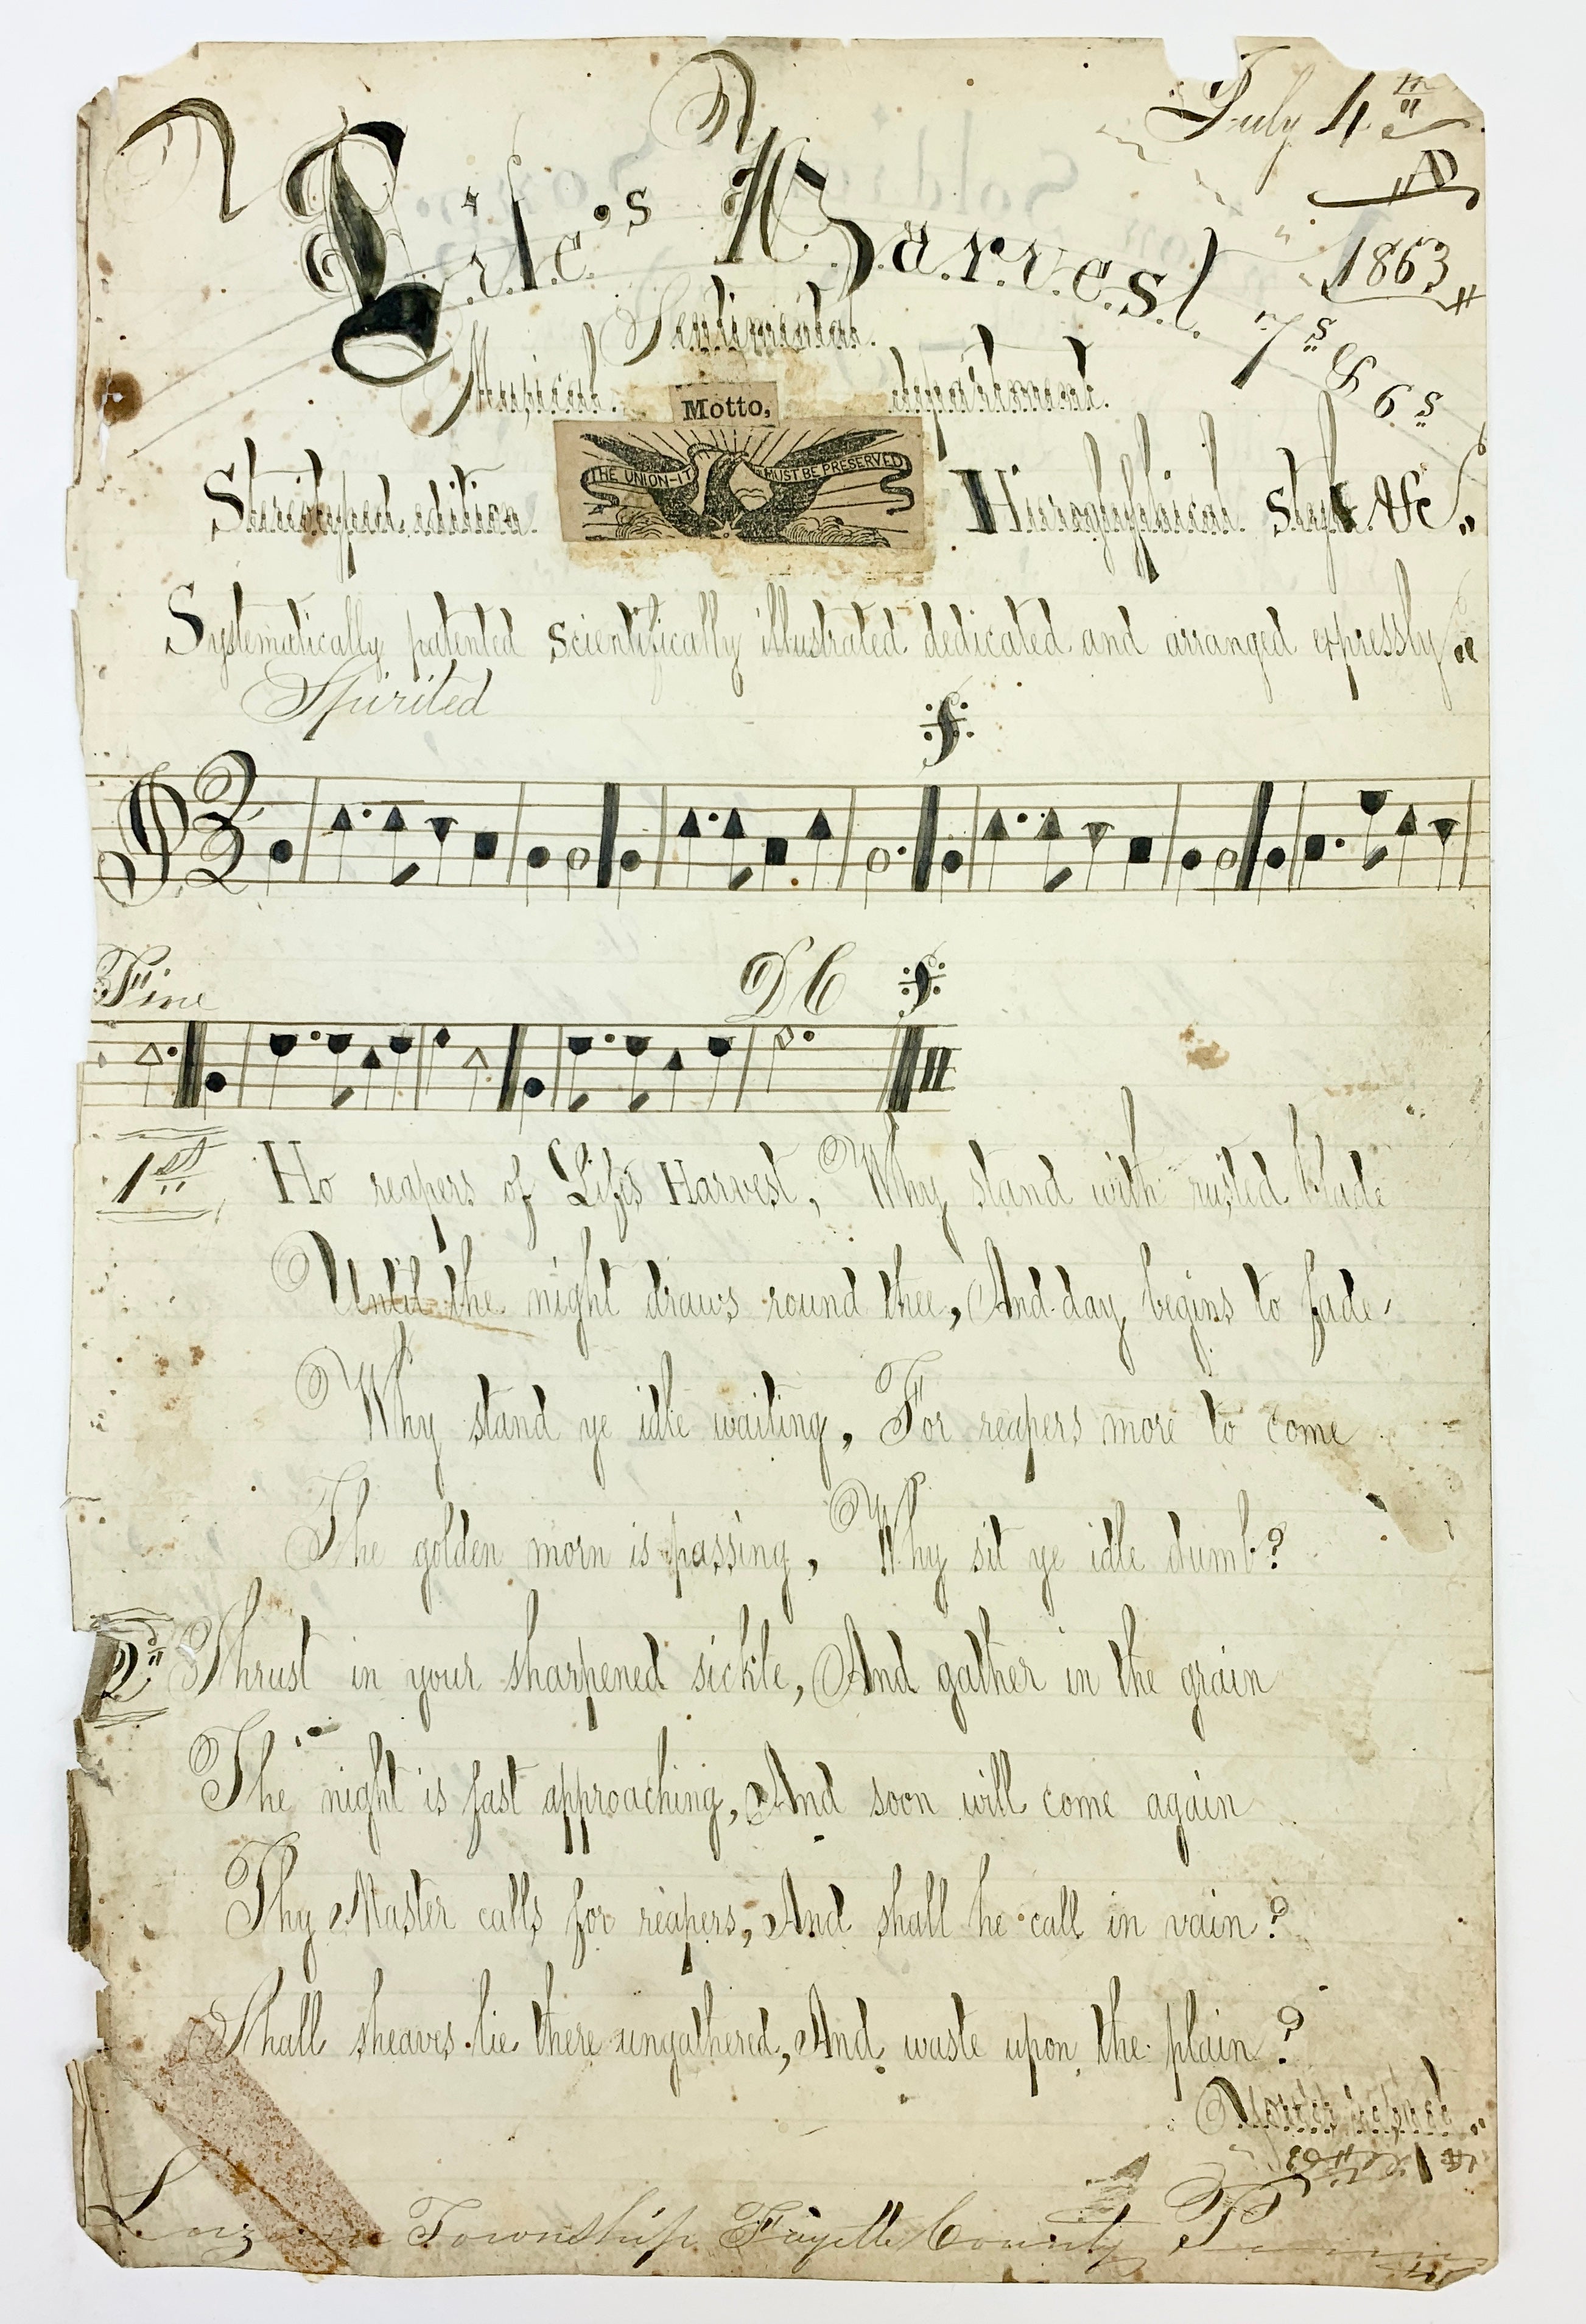 July 4th
AD
1863
Life's Harvest
7s & 6s
Sentimental.
Musical. department.
Motto,
THE UNION—IT MUST BE PRESERVED
Steriotyped edition. Hieroglyphical Style &c.
Systematically patented scientifically illustrated dedicated and arranged expressly
Spirited
Fine DC
1st Ho reapers of Life's Harvest, Why stand with rusted blade
Until the night draws round thee, And day begins to fade
Why stand ye idle waiting, For reapers more to come
The golden morn is passing, Why sit ye idle dumb?
2d Thrust in your sharpened sickle, And gather in the grain
The night is fast approaching, And soon will come again
Thy Master calls for reapers, And shall he call in vain?
Shall sheaves lie there ungathered, And waste upon the plain?
Township Fayette County Penn